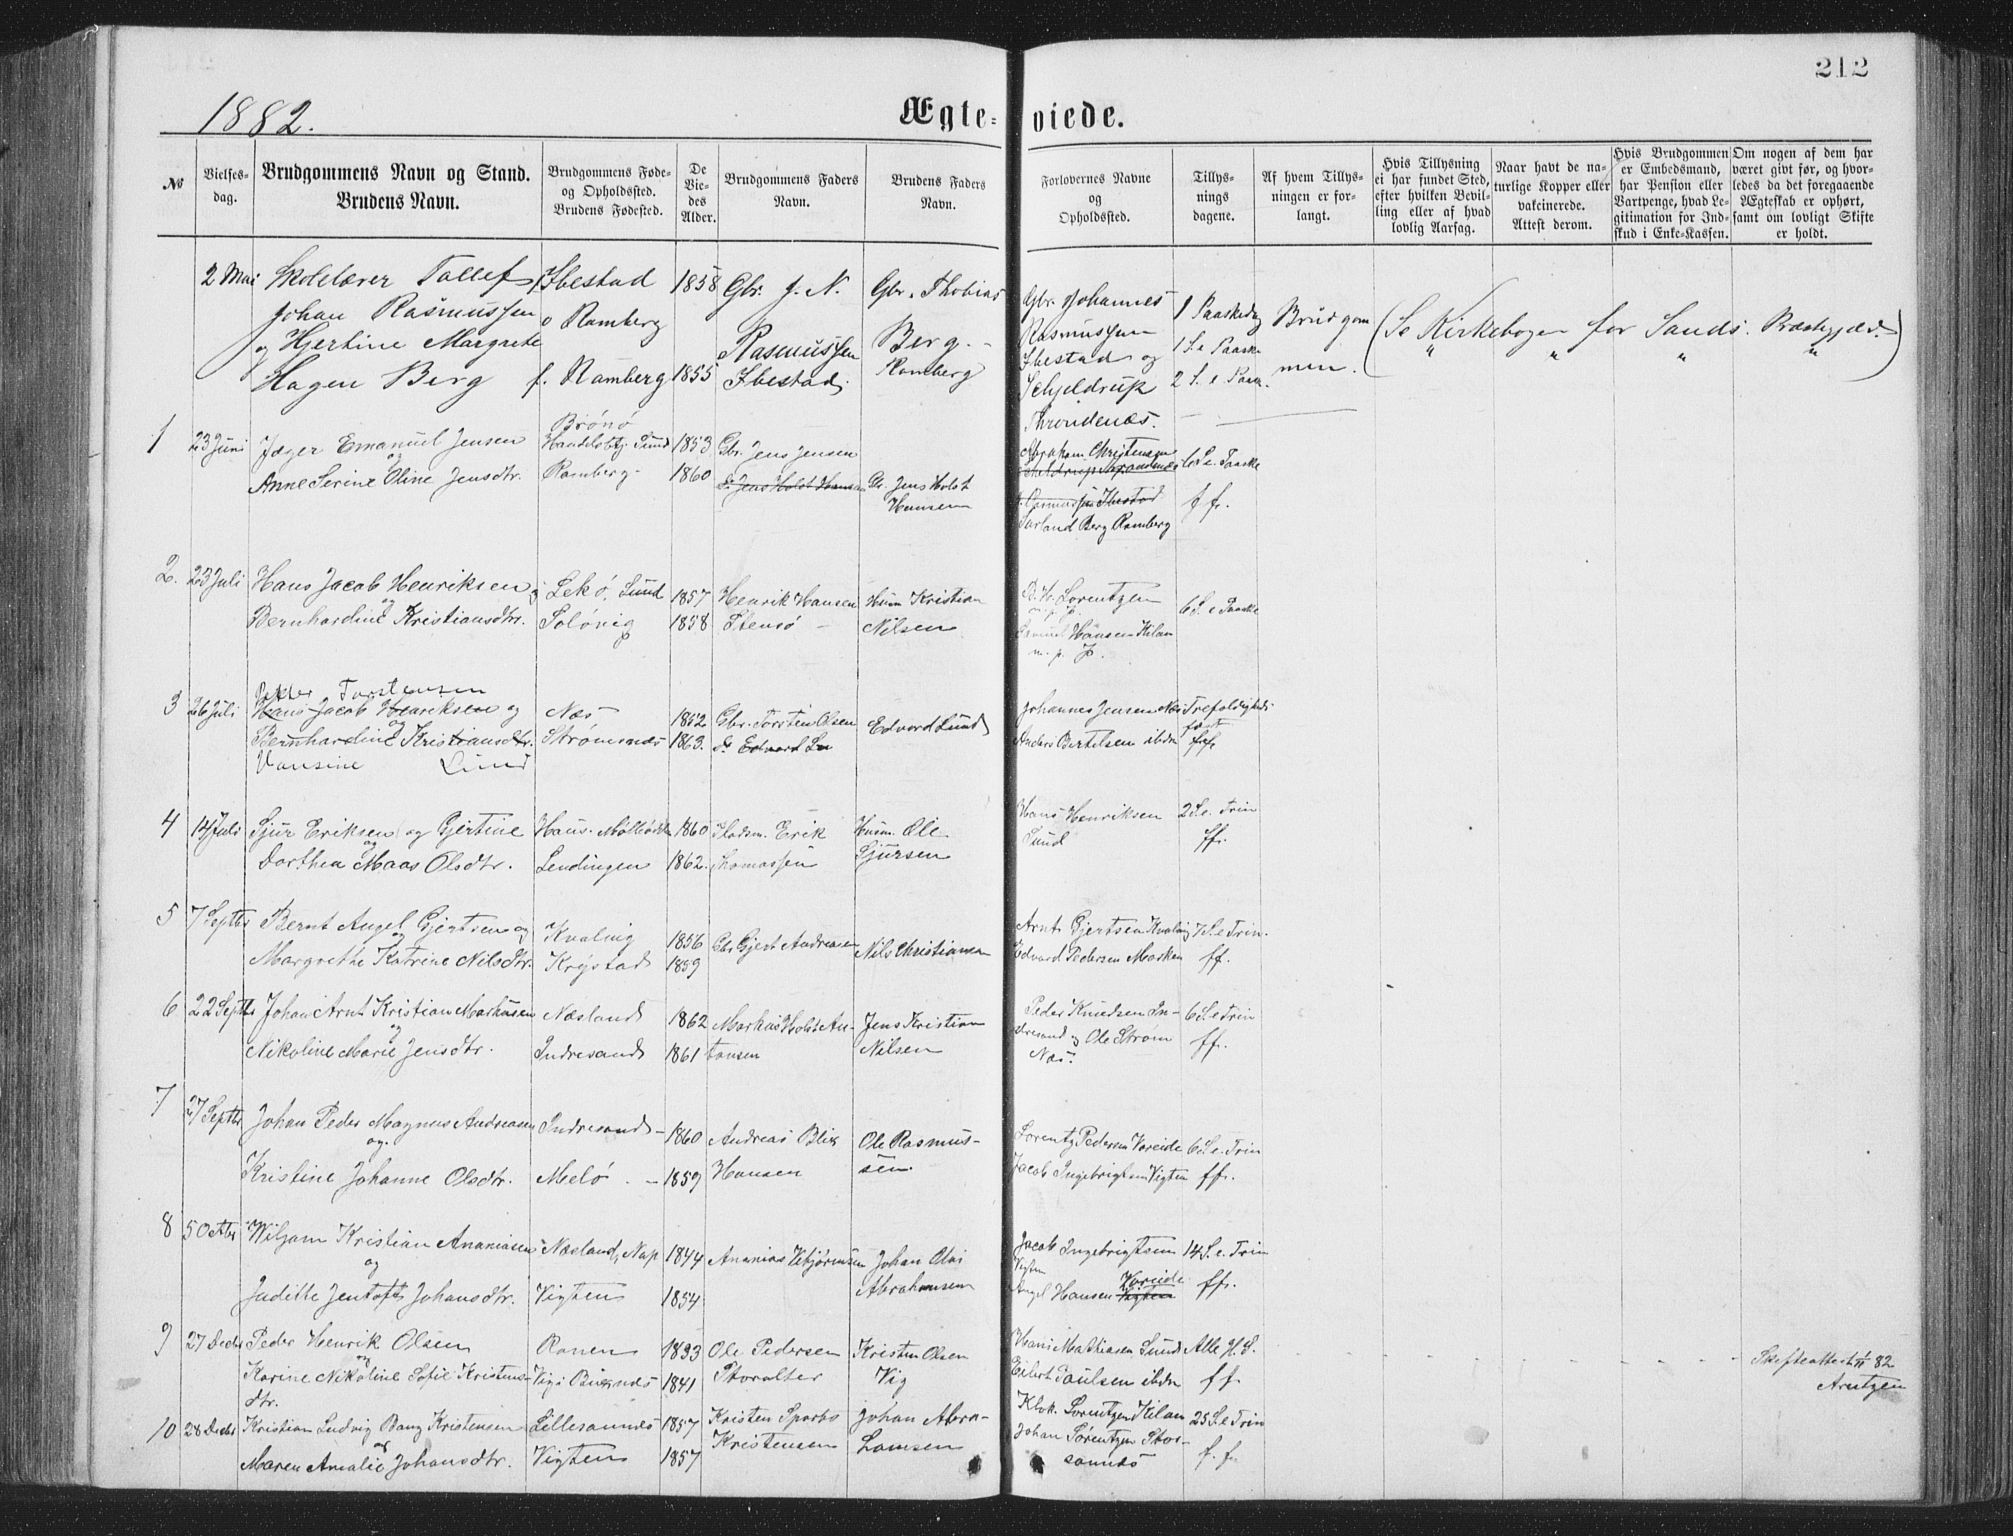 212
1882.
Ægte- viede.
№
Vielses-
dag.
Brudgommens Navn og Stand.
Brudens Navn.
Brudgommens Føde-
og Opholdssted.
Brudens Fødested.
De
Vie-
des
Alder.
Brudgommens Faders
Navn.
Brudens Faders
Navn.
Forlovernes Navne
og
Opholdssted.
Tillys-
nings
dagene.
Af hvem Tillys-
ningen er for-
langt.
Hvis Tillysning
ei har fundet Sted,
efter hvilken Bevil-
ling eller af hvad
lovlig Aarsag.
Naar havt de na-
turlige Kopper eller
vakcinerede.
Attest derom.
Hvis Brudgommen
er Embedsmand,
har Pension eller
Vartpenge, hvad Le-
gitimation for Ind-
skud i Enke-Kassen.
Om nogen af dem har
været givt før, og hvor-
ledes da det foregaaende
Ægteskab er ophørt,
samt om lovligt Skifte
er holdt.
2 Mai Skolelærer Tollef Ibestad 1858 Gbr. J. N. Gbr. Thobias Gbr. Johannes 1 Paaskedag Brudgom (Se Kirkebogen for Sands Præstegjæld
Johan Rasmussen o Ramberg Rasmussen Berg. Rasmussen 1 S. e Paaske men. " " " ")
og Hjertine Margrete Ibestad. Ramberg Ibestad og 2 S. e Paask.
Hagen Berg f. Ramberg 1855 Schjeldrup
Throndenæs.
1 23 Juni Jæger Emanuel Jensen Brønø 1853 Gbr. Jens Jensen Abraham Christensen 6 S. e. Paaske
og Handelsbtj. Sund
Anne Serine Oline Jensdtr. Ramberg 1860 Gr. Jens Holst Hansen Gr. Jens Holst ff.
Hansen
Rasmussen Ibestad
Berg Ramberg
2. 23 Juli Hans Jacob Henriksen Lekø, Sund 1857 Henrik Hansen Husm Kristian Lorentzen 6 S. e Paaske
og
Bernhardine Kristiansdtr. Soløvig 1858 Stensø Nilsen Hansen Kilan
m. p. P.
3 26 Juli Petter Torstensen
Hans Jacob Henriksen og Næs 1852 Gbr. Torsten Olsen Edvard Lund Johannes Jensen Næs Trefoldigheds
Bernhardine Kristiansdtr. Strømsnæs 1863. Edvard Lu Anders Bertelsen ibdm fest ff.
Vansine Lund
4 14 Juli Sjur Eriksen og Gjertine 1860 Erik Husm. Ole Hans Henriksen 2 S. e. Trin
og
Dorthea Maas Olsdtr. Lendingen 1862. Thomassen Sjursen Sund ff.
5 7 Septbr Bernt Angel Gjertsen og Kvalvig 1856 Gbr Gjert Andreasen Nils Christiansen Arnt Gjertsen Kvalvig 7 S. e Trin.
Margrethe Katrine Nilsdtr. Krystad 1859 Edvard Pedersen Marken ff.
6 22 Septbr Johan Arnt Kristian Markusen Næsland 1862 Markus Holst An- Jens Kristian Peder Knudsen In- 6 S. e Trin
og
Nikoline Marie Jensdtr. Indresand 1861 tonsen Nilsen dresand og Ole Strøm ff.
Næs.
7 27 Septbr Johan Peder Magnus Andreasen Indresand 1860 Andreas Blix Ole Rasmus- Lorentz Pedersen Voreide 6 S. e. Trin
og.
Kristine Johanne Olsdtr. Melø 1859 Hansen sen. Jacob Ingebrigtsen Vigten ff.
8 5 Octbr Wiljam Kristian Ananiasen Næsland, Nap 1844 Ananias Johan Olai Jacob Ingebrigtsen 14 S. e. Trin
og Vigten
Judithe Jentoft Johansdtr. Vigten 1854 Abrahamsen Angel Hansen Vigten Voreide ff.
9 27 Decbr Peder Henrik Olsen Ranen 1833 Ole Pedersen Kristen Olsen Hans Mathiasen Sund Alle H. S. Skifteattest 82
og
Karine Nikoline Sofie Kristens- Vig i Buksnæs 1841 Storalter Vig Eilert Paulsen ibdm ff. Arntzen
dtr.
10 28 Decbr Kristian Ludvig Bang Kristensen Lillesannæs 1857 Kristen Sparbo Johan Abra- Klok. Lorentzen Kilan 25 S. e Trin
og
Maren Amalie Johansdtr. Vigten 1857 Kristensen hamsen Johan Sørentzen Stor- f. f.
sannæs